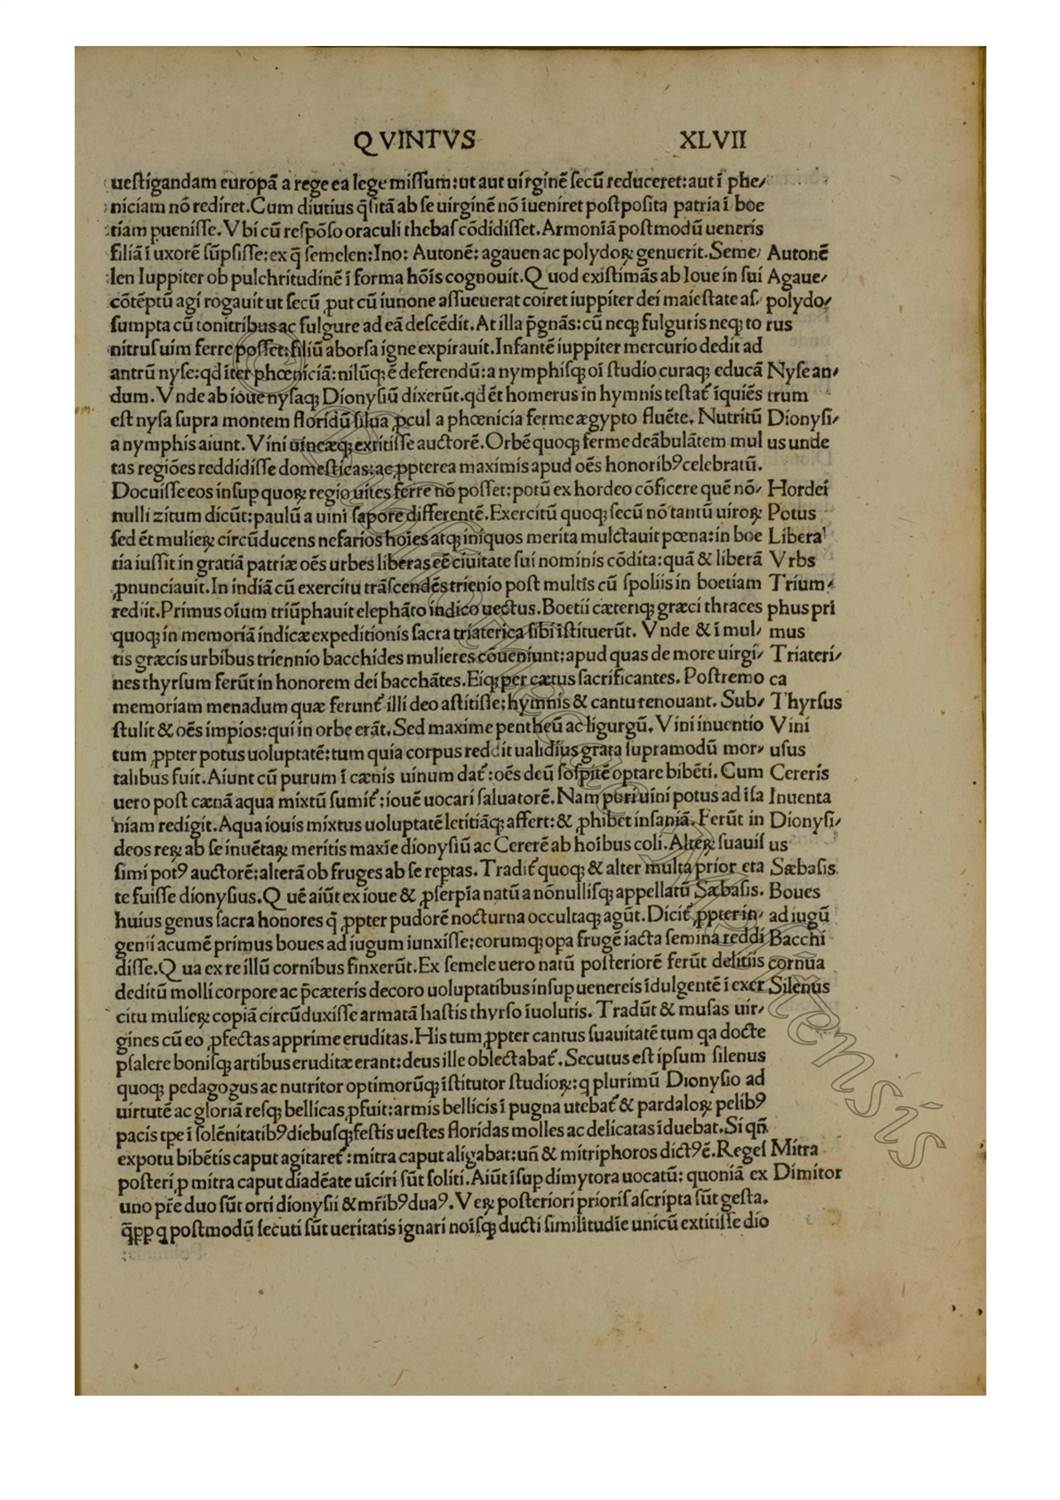 QVINTVS XLVII
ueſtigandam europā a rege ea lege miſſum: ut aut uirginē ſecū reduceret: aut ī phe/
niciam nō rediret. Cum diutius q̄ſitā ab ſe uirginē nō īueniret poſtpoſita patria ī boe
tiam ꝑueniſſe. Vbi cū reſpōſo oraculi thebaſ cōdidiſſet. Armoniā poſtmodū ueneris
filiā ī uxorē ſūpſiſſe: ex q̄ ſemelen: Ino: Autonē: agauen ac polydoꝝ genuerit. Seme/ Autonē
len Iuppiter ob pulchritudinē ī forma hōis cognouit. Quod exiſtimās ab Ioue in ſui Agaue/
cōtēptū agi rogauit ut ſecū ꝓut cū iunone aſſueuerat coiret iuppiter dei maieſtate aſ/ polydo/
ſumpta cū tonitribus ac fulgure ad eā deſcēdit. At illa p̄gnās: cū neqꝫ fulguris neqꝫ to rus
nitruſ uim ferre poſſet: filiū aborſa igne expirauit. Infantē iuppiter mercurio dedit ad
antrū nyſe: qd īter phœniciā: nilūqꝫ ē deferendū: a nymphiſqꝫ oī ſtudio curaqꝫ educā Nyſe an/
dum. Vnde ab ioue nyſaqꝫ Dionyſiū dixerūt. qd ēt homerus in hymnis teſtat᷑ īquiēs trum
eſt nyſa ſupra montem floridū ſilua ꝓcul a phœnicia ferme ægypto fluēte. Nutritū Dionyſi/
a nymphis aiunt. Vini uineæqꝫ extitiſſe auctorē. Orbē quoqꝫ ferme deābulātem mul us unde
tas regiōes reddidiſſe domeſticas: ac ꝓpterea maximis apud oēs honoribꝰ celebratū.
Docuiſſe eos inſup quoꝝ regio uites ferre nō poſſet: potū ex hordeo cōficere quē nō/ Hordei
nulli zitum dicūt: paulū a uini ſapore differentē. Exercitū quoqꝫ ſecū nō tantū uiroꝝ Potus
ſed ēt mulieꝝ circūducens nefarios hoīes atqꝫ iniquos merita mulctauit pœna: in boe Libera
tia iuſſit in gratiā patriæ oēs urbes liberas eē ciuitate ſui nominis cōdita: quā & liberā Vrbs
ꝓnunciauit. In indiā cū exercitu trāſcendēs trienio poſt multis cū ſpoliis in boetiam Trium/
rediit. Primus oīum triūphauit elephāto indico uectus. Boetii cæteriqꝫ græci thraces phus pri
quoqꝫ in memoriā indicæ expeditionis ſacra triaterica ſibi īſtituerūt. Vnde & ī mul/ mus
tis græcis urbibus triennio bacchides mulieres cōueniunt: apud quas de more uirgi/ Triateri/
nes thyrſum ferūt in honorem dei bacchātes. Eiqꝫ per cætus ſacrificantes. Poſtremo ca
memoriam menadum quæ ferunt᷑ illi deo aſtitiſſe: hymnis & cantu renouant. Sub/ Thyrſus
ſtulit & oēs impios: qui in orbe erāt. Sed maxime pentheū ac ligurgū. Vini inuentio Vini
tum ꝓpter potus uoluptatē: tum quia corpus reddit ualidius grata ſupramodū mor/ uſus
talibus fuit. Aiunt cū purum ī cænis uinum dat᷑: oēs deū ſoſpitē optare bibēti. Cum Cereris
uero poſt cænā aqua mixtū ſumit᷑: iouē uocari ſaluatorē. Nam puri uini potus ad īſa Inuenta
niam redigit. Aqua iouis mixtus uoluptatē letitiāqꝫ affert: & ꝓhibet inſaniā. Ferūt in Dionyſi/
deos reꝝ ab ſe inuētaꝝ meritis maxīe dionyſiū ac Cererē ab hoībus coli. Alteꝝ ſuauiſ us
ſimi potꝰ auctorē: alterā ob fruges ab ſe reptas. Tradit᷑ quoqꝫ & alter multa prior eta Sæbaſis
te fuiſſe dionyſius. Quē aiūt ex ioue & ꝓſerpīa natū a nōnulliſqꝫ appellatū Sæbaſis. Boues
huius genus ſacra honores q̄ ꝓpter pudorē nocturna occultaqꝫ agūt. Dicit᷑ ꝓpter in/ ad iugū
genii acumē primus boues ad iugum iunxiſſe: eorumqꝫ opa frugē iacta ſemina reddi Bacchi
diſſe. Qua ex re illū cornibus finxerūt. Ex ſemele uero natū poſteriorē ferūt delitiis cornua
deditū molli corpore ac p̄cæteris decoro uoluptatibus inſup uenereis īdulgentē ī exer Silenus
citu mulieꝝ copiā circūduxiſſe armatā haſtis thyrſo īuolutis. Tradūt & muſas uir/
gines cū eo ꝓfectas apprime eruditas. His tum ꝓpter cantus ſuauitatē tum qa docte
pſalere boniſqꝫ artibus eruditæ erant: deus ille oblectabat᷑. Secutus eſt ipſum ſilenus
quoqꝫ pedagogus ac nutritor optimorūqꝫ īſtitutor ſtudioꝝ: q plurimū Dionyſio ad
uirtutē ac gloriā reſqꝫ bellicas ꝓfuit: armis bellicis ī pugna utebat᷑ & pardaloꝝ pelibꝰ
pacis tpe ī ſolēnitatibꝰ diebuſqꝫ feſtis ueſtes floridas molles ac delicatas īduebat. Si qn̄
expotu bibētis caput agitaret᷑: mitra caput aligabat: un̄ & mitriphoros dictꝰ ē. Regeſ Mitra
poſteri ꝓ mitra caput diadēate uīciri ſūt ſoliti. Aiūt īſup dimytora uocatū: quoniā ex Dimitor
uno pr̄e duo ſūt orti dionyſii & mr̄ibꝰ duaꝰ. Veꝝ poſteriori prioriſ aſcripta ſūt geſta.
q̄ꝓp q poſtmodū ſecuti ſūt ueritatis ignari noīſqꝫ ducti ſimilitudīe unicū extitiſſe dio